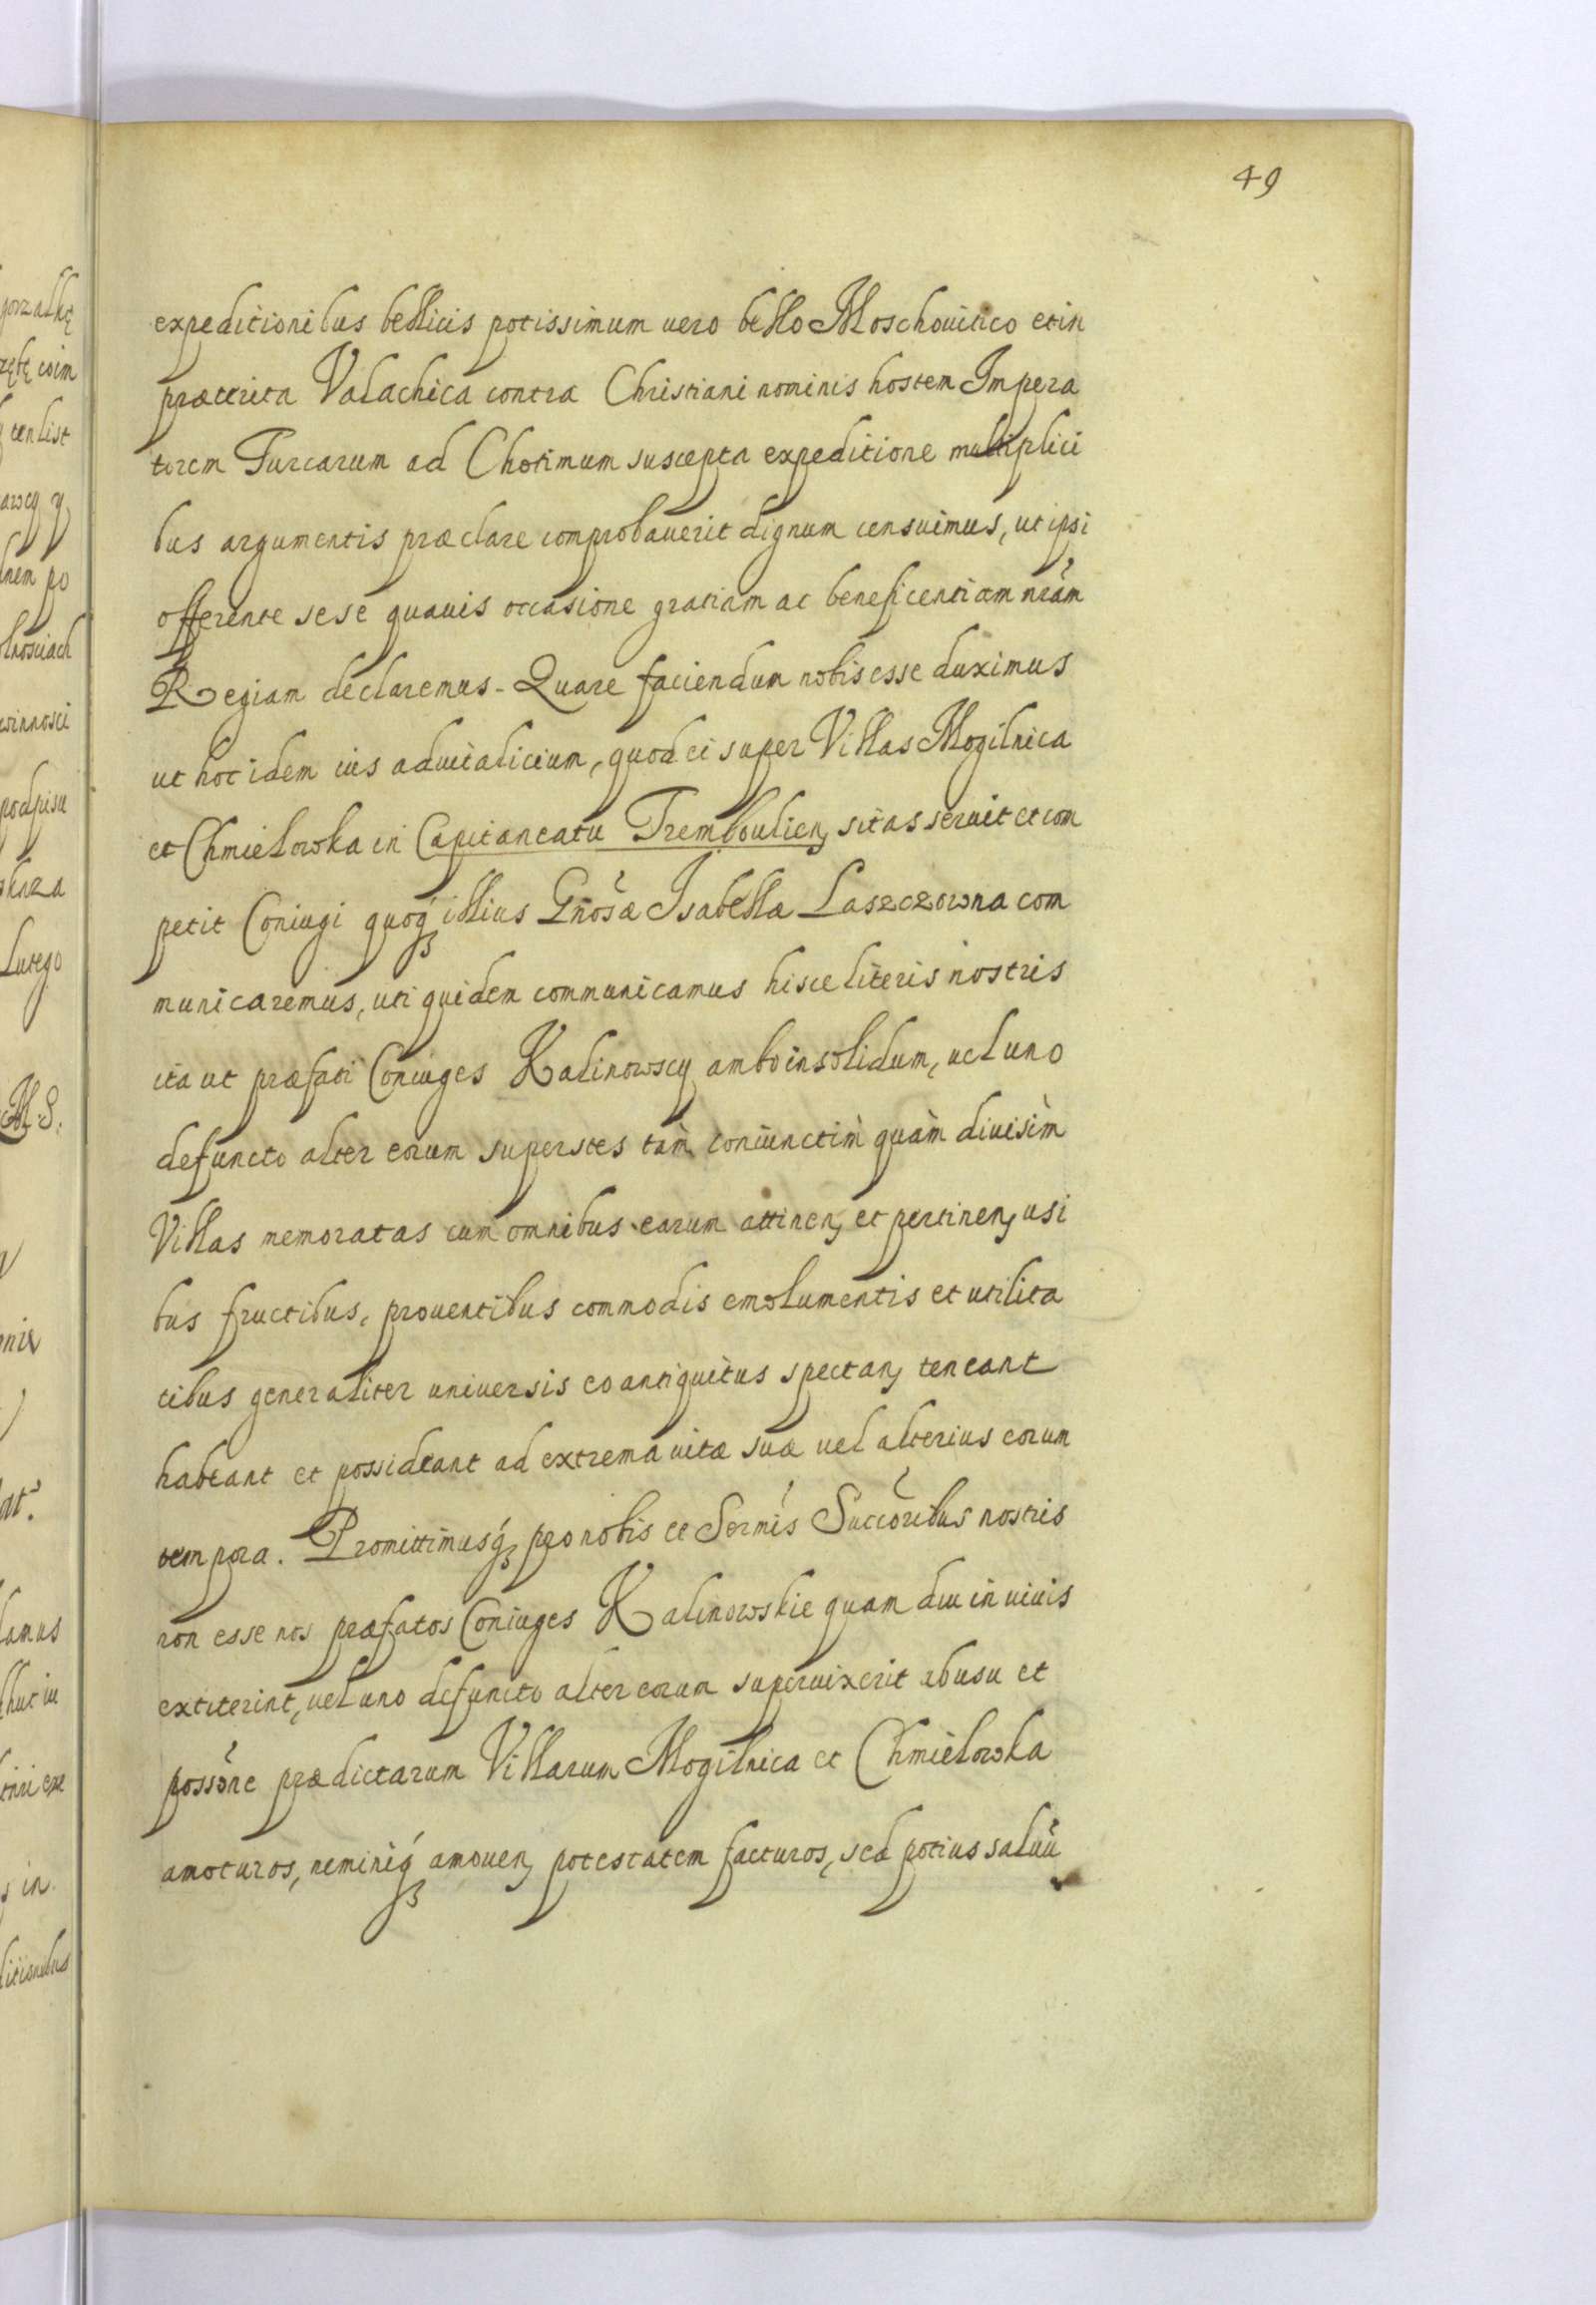 49
expeditionibus bellicis potissimum vero bello Moschovitico et in
præterita Valachica contra Christiani nominis hostem Impera
torem Turcarum ad Chotimum suscepta expeditione multiplici
bus argumentis præclare comprobaverit dignum censuimus, ut ipsi
offerente sese quavis occasione gratiam ac beneficentiam nrãm
Regiam declaremus - Quare faciendum nobis esse duximus
ut hoc idem ius advitalicium, quod ei super Villas Mogilnica
et Chmielowka in Capitaneatu Trembowlien, sitas servit et com
petit Coniugi quoq illius Gnosæ Isabellæ Laszczowna com
municaremus, uti quidem communicamus hisce literis nostris
ita ut præfati Coniuges Kalinowscy ambo insolidum, vel uno
defuncto alter eorum superstes tàm coniunctìm quàm divisìm
Villas memoratas cum omnibus earum attinen, et pertinen, usi
bus fructibus, proventibus commodis emolumentis et utilita
tibus generaliter universis eo antiquitus spectan, teneant
habeant et possideant ad extrema vitæ suæ vel alterius eorum
tempora. Promittimusq, pro nobis et Sermis Succoribus nostris
non esse nos præfatos Coniuges Kalinowskie quam diu in vivis
extiterint, vel uno defuncto alter eorum supervixerit ab usu et
possone prædictarum Villarum Mogilnica et Chmielowka
amoturos, neminiq amoven, potestatem facturos, sed potius salvũ
podpisu
Lutego
M. S.
lamus
s in